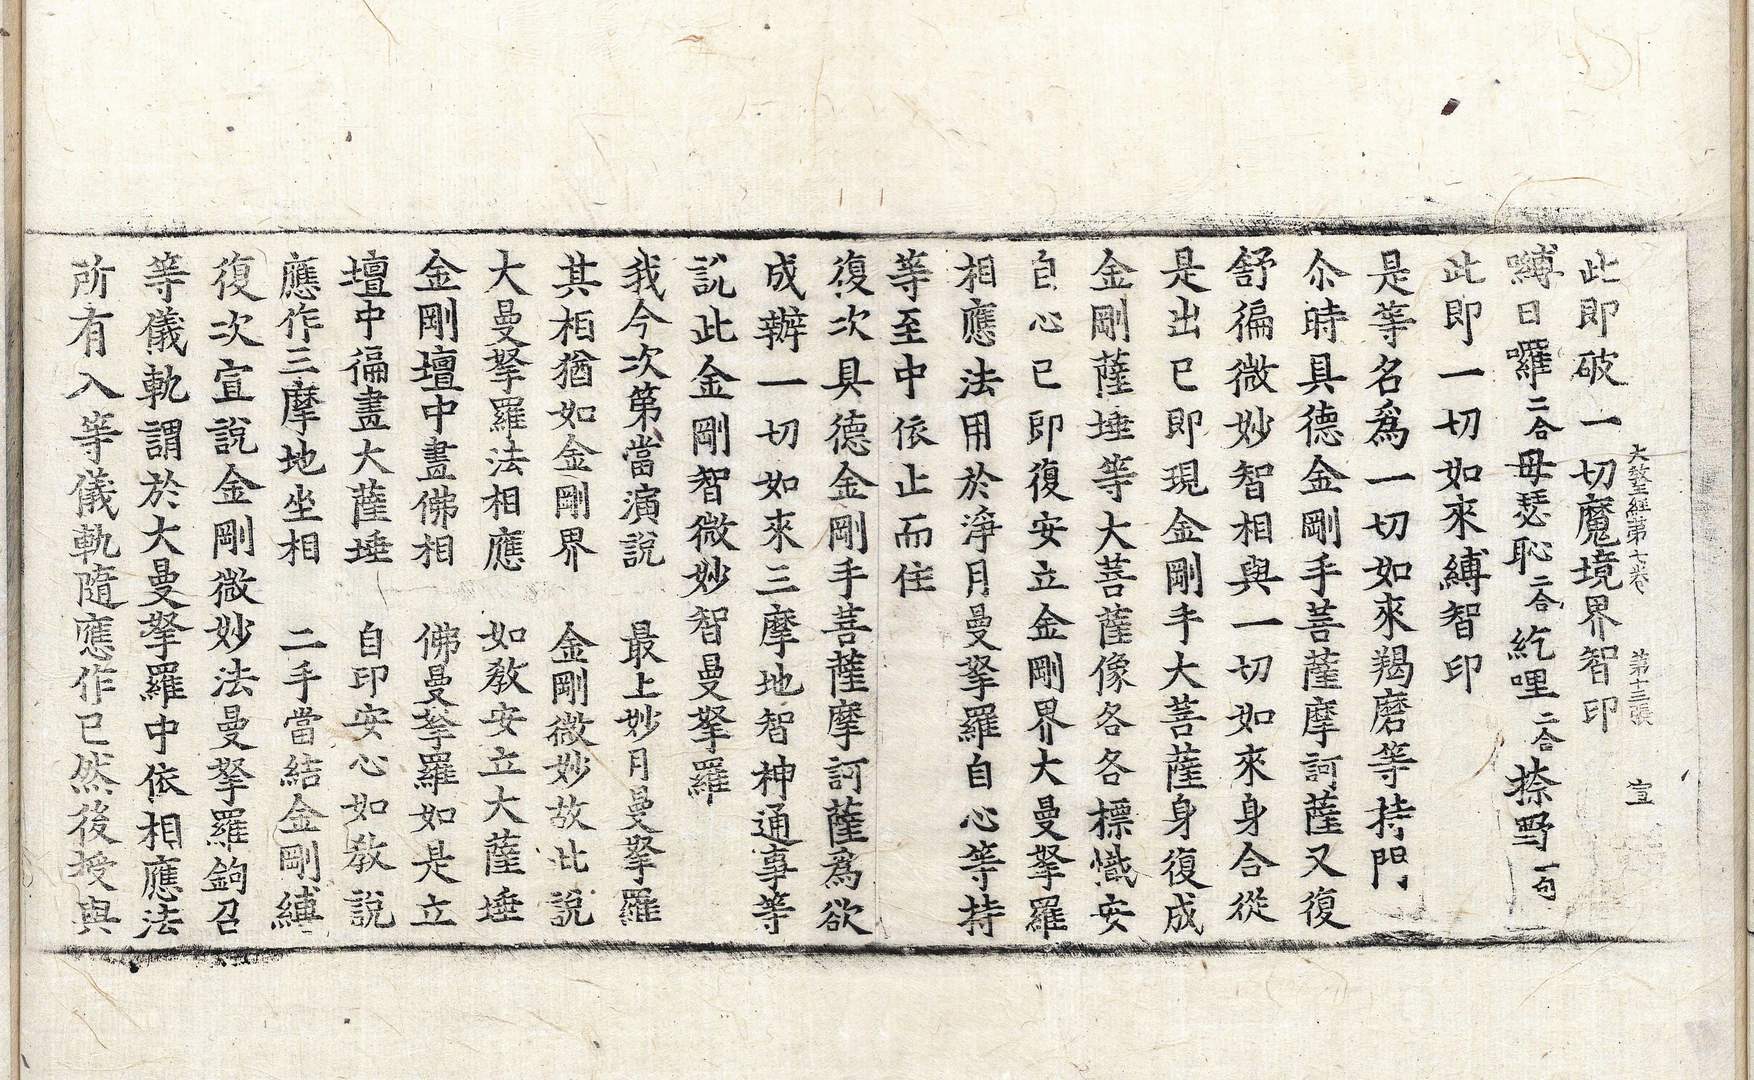 大敎王經第七卷　第十三張　宣
此即破一切魔境界智印
嚩日囉二合母瑟恥二合紇哩二合捺野一句
此即一切如來縛智印
是等名爲一切如來羯磨等持門
尒時具德金剛手菩薩摩訶薩又復
舒徧微妙智相與一切如來身合從
是出已即現金剛手大菩薩身復成
金剛薩埵等大菩薩像各各標幟安
自心已即復安立金剛界大曼拏羅
相應法用於淨月曼拏羅自心等持
等至中依止而住
復次具德金剛手菩薩摩訶薩爲欲
成辦一切如來三摩地智神通事等
說此金剛智微妙智曼拏羅
我今次第當演說　最上妙月曼拏羅
其相猶如金剛界　金剛微妙故此說
大曼拏羅法相應　如敎安立大薩埵
金剛壇中畫佛相　佛曼拏羅如是立
壇中徧畫大薩埵　自印安心如敎說
應作三摩地坐相　二手當結金剛縛
復次宣說金剛微妙法曼拏羅鉤召
等儀軌謂於大曼拏羅中依相應法
所有入等儀軌隨應作已然後授與